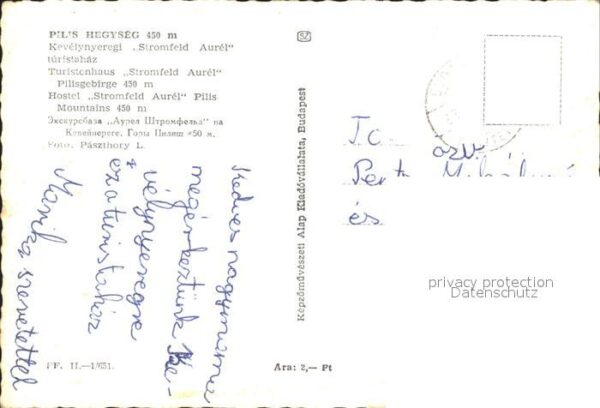 PILIS HEGYSÉG 450 m
Kevélynyeregi „Stromfeld Aurél"
túristaház
Turistenhaus „Stromfeld Aurél"
Pilisgebirge 450 m
Hostel „Stromfeld Aurél" Pilis
Mountains 450 m
Экскурсбаза „Аурел Штромфельд" на
Кевейнереге. Горы Пилиш 450 м.
Foto. Pászthory L.
Kedves nagymama
megérkeztünk Ke-
vélynyeregre
ez a turistaház
Marika szeretettel
FF. II.—1/651.
Ára: 2,— Ft
Képzőművészeti Alap Kiadóvállalata, Budapest
özv
és
privacy protection
Datenschutz